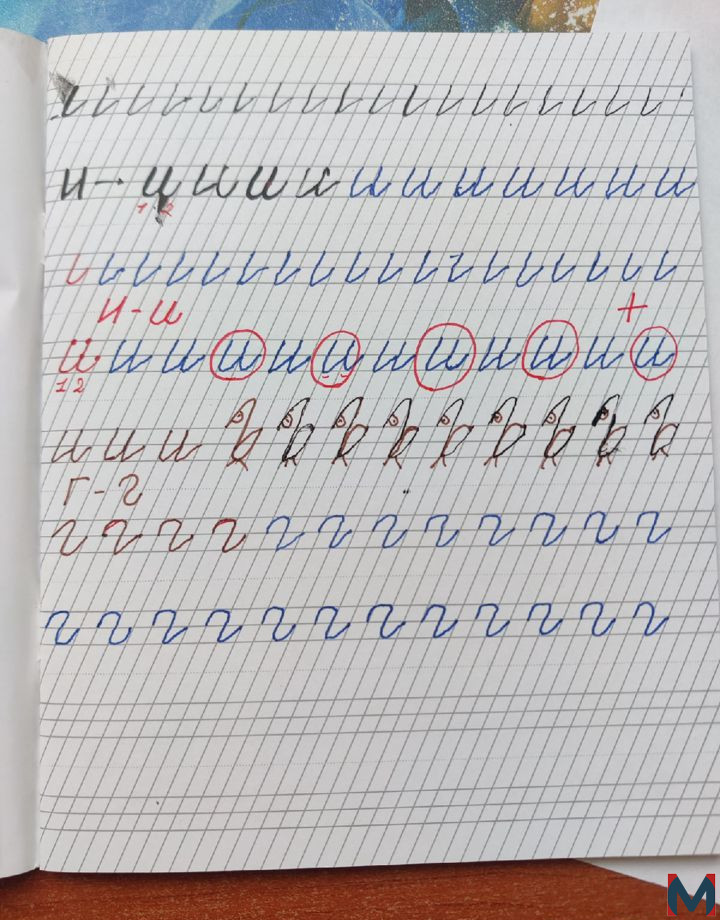 И - и и и и и и и и и и и
И - и
и и и и и и и и и и и и +
1 2
и и и
Г - г
г г г г г г г г г г г г
г г г г г г г г г г г г
M